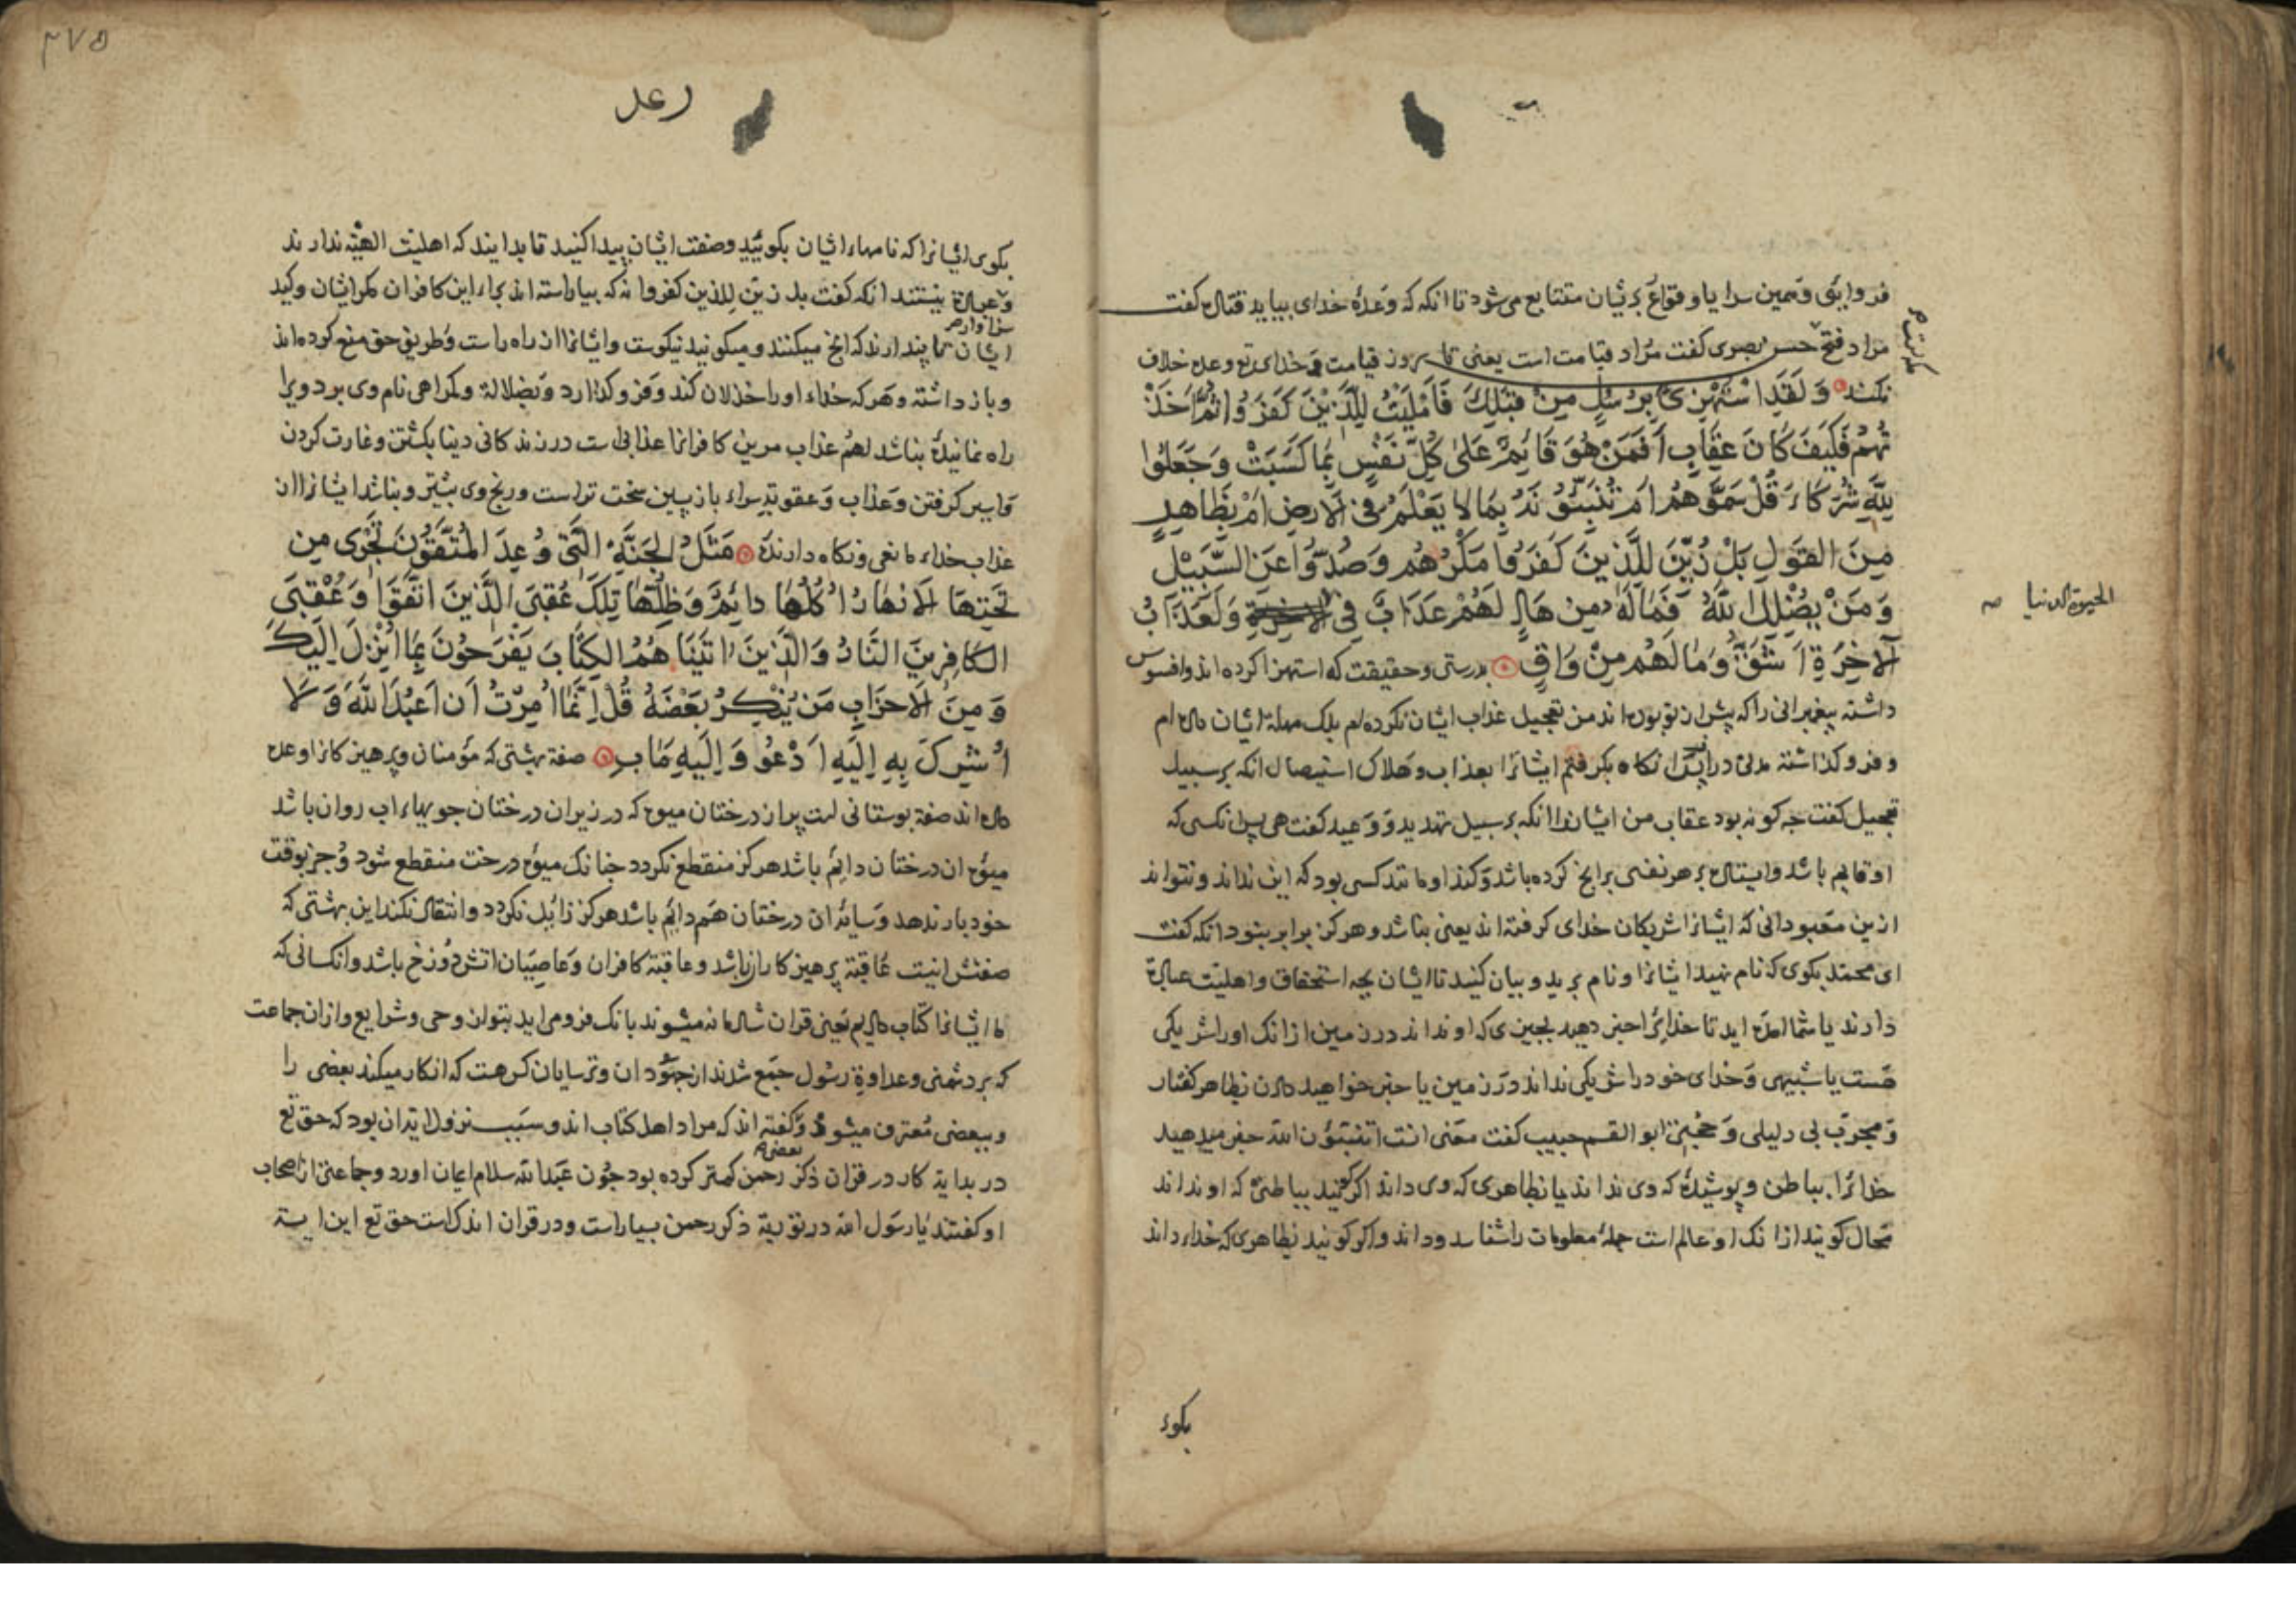 فروایی و همین سرایا و وقایع بریشان متتابع می‌شود تا انکه که وعدهٔ خدای بیاید قتال کفت
مراد فتح مکه است حسن بصری کفت مراد قیامت است یعنی تا بروز قیامت و خدای تع وعده خلاف
نکند وَلَقَدِ اسْتُهْزِئَ بِرُسُلٍ مِنْ قَبْلِكَ فَأَمْلَيْتُ لِلَّذِينَ كَفَرُوا ثُمَّ أَخَذْ
تُهُمْ فَكَيْفَ كَانَ عِقَابِ أَفَمَنْ هُوَ قَائِمٌ عَلَىٰ كُلِّ نَفْسٍ بِمَا كَسَبَتْ وَجَعَلُوا
لِلَّهِ شُرَكَاءَ قُلْ سَمُّوهُمْ أَمْ تُنَبِّئُونَهُ بِمَا لَا يَعْلَمُ فِي الْأَرْضِ أَمْ بِظَاهِرٍ
مِنَ الْقَوْلِ بَلْ زُيِّنَ لِلَّذِينَ كَفَرُوا مَكْرُهُمْ وَصُدُّوا عَنِ السَّبِيلِ
وَمَنْ يُضْلِلِ اللَّهُ فَمَا لَهُ مِنْ هَادٍ لَهُمْ عَذَابٌ فِي الحیوة الدنیا وَلَعَذَابُ
الْآخِرَةِ أَشَقُّ وَمَا لَهُمْ مِنْ وَاقٍ بدرستی و حقیقت که استهزا کرده اند و افسوس
داشته پیغبرانی را که پیش از تو بوده اند من تعجیل عذاب ایشان نکرده ام بلک مهلة ایشان داده ام
و فرو کذاشته مدتی دراز پس انکاه بکرفتم ایشانرا بعذاب و هلاک استیصال انکه بر سبیل
تعجیل کفت جه کونه بود عقاب من ایشانرا انکه بر سبیل تهدید و وعید کفت هی پس انکسی که
او قایم باشد و ایستاده بر هر نفسی برانج کرده باشد و کند او مانند کسی بود که این نداند و نتواند
ازین معبودانی که ایشانرا شریکان خدای کرفته اند یعنی نباشد و هرکز برابر نبود انکه کفت
ای محمد بکوی که نام نهید ایشانرا و نام برید و بیان کنید تا ایشان بجه استحقاق و اهلیت عبادة
دارند یا شما امده اید تا خدایرا خبر دهید بجیزی که او نداند در زمین ازانک او را شریکی
هست یا شبیهی و خدای خود را شریکی نداند در زمین یا خبر خواهید دادن بظاهر کفتار
و مجرب بی دلیلی و حجتی ابو القسم حبیب کفت معنی انست اتنبئون الله خبر میدهید
خدایرا بباطن و پوشیده که وی نداند یا بظاهری که وی داند اکر کویند بباطنی که او نداند
محال کویند ازانک او عالم است جملهٔ معلومات را شناسد و داند و اکر کویند بظاهری که خدای داند
بکوی
۳۷۵
رعد
بکوی ایشانرا که نامهاء ایشان بکویید و صفت ایشان پیدا کنید تا بدانند که اهلیت الهیة ندارند
و سزاوار عبادة نیستند انکه کفت بل زین للذین کفروا نه که بیاراسته اند برای این کافران مکر ایشان و کید
ایشان تا پندارند که انج میکنند و میکویند نیکوست و ایشانرا از راه راست و طریق حق منع کرده اند
و باز داشته و هر که خدای او را خذلان کند و فرو کذارد و بضلالة و کمراهی نام وی برد ویرا
راه نمایندهٔ نباشد لهم عذاب مرین کافرانرا عذابی است در زندکانی دنیا بکشتن و غارت کردن
و اسیر کرفتن و عذاب و عقوبة سرای بازپسین سخت تر است و رنج وی بیشتر و نباشد ایشانرا از
عذاب خدای مانعی و نکاه دارندهٔ مَثَلُ الْجَنَّةِ الَّتِي وُعِدَ الْمُتَّقُونَ تَجْرِي مِنْ
تَحْتِهَا الْأَنْهَارُ أُكُلُهَا دَائِمٌ وَظِلُّهَا تِلْكَ عُقْبَى الَّذِينَ اتَّقَوْا وَعُقْبَى
الْكَافِرِينَ النَّارُ وَالَّذِينَ آتَيْنَاهُمُ الْكِتَابَ يَفْرَحُونَ بِمَا أُنْزِلَ إِلَيْكَ
وَمِنَ الْأَحْزَابِ مَنْ يُنْكِرُ بَعْضَهُ قُلْ إِنَّمَا أُمِرْتُ أَنْ أَعْبُدَ اللَّهَ وَلَا
أُشْرِكَ بِهِ إِلَيْهِ أَدْعُو وَإِلَيْهِ مَآبِ صفة بهشتی که مؤمنان و پرهیزکارانرا وعده
داده اند صفة بوستانی است پر از درختان میوه که در زیر ان درختان جویهاء اب روان باشد
میوه ان درختان دایم باشد هرکز منقطع نکردد جنانک میوهٔ درخت منقطع شود و جز بوقت
خود بار ندهد و سایهٔ ان درختان هم دایم باشد هرکز زایل نکردد و انتقال نکند این بهشتی که
صفتش اینست عاقبة پرهیزکاران باشد و عاقبة کافران و عاصیان اتش دوزخ باشد و انکسانی که
ما ایشانرا کتاب دادیم یعنی قران شادمانه میشوند بانک فرو می اید بتو از وحی و شرایع و ازان جماعت
که بر دشمنی و عداوة رسول جمع شدند از جهودان و ترسایان کس هست که انکار میکند بعضی را
و ببعضی معترف میشود و کفته اند که مراد اهل کتاب اند و سبب نزول ایة ان بود که حق تع
در بدایة کار در قران ذکر رحمن کمتر کرده بود جون عبدالله سلام ایمان اورد و جماعتی از اصحاب
او کفتند یا رسول الله در توریة ذکر رحمن بسیار است و در قران اندک است حق تع این ایة